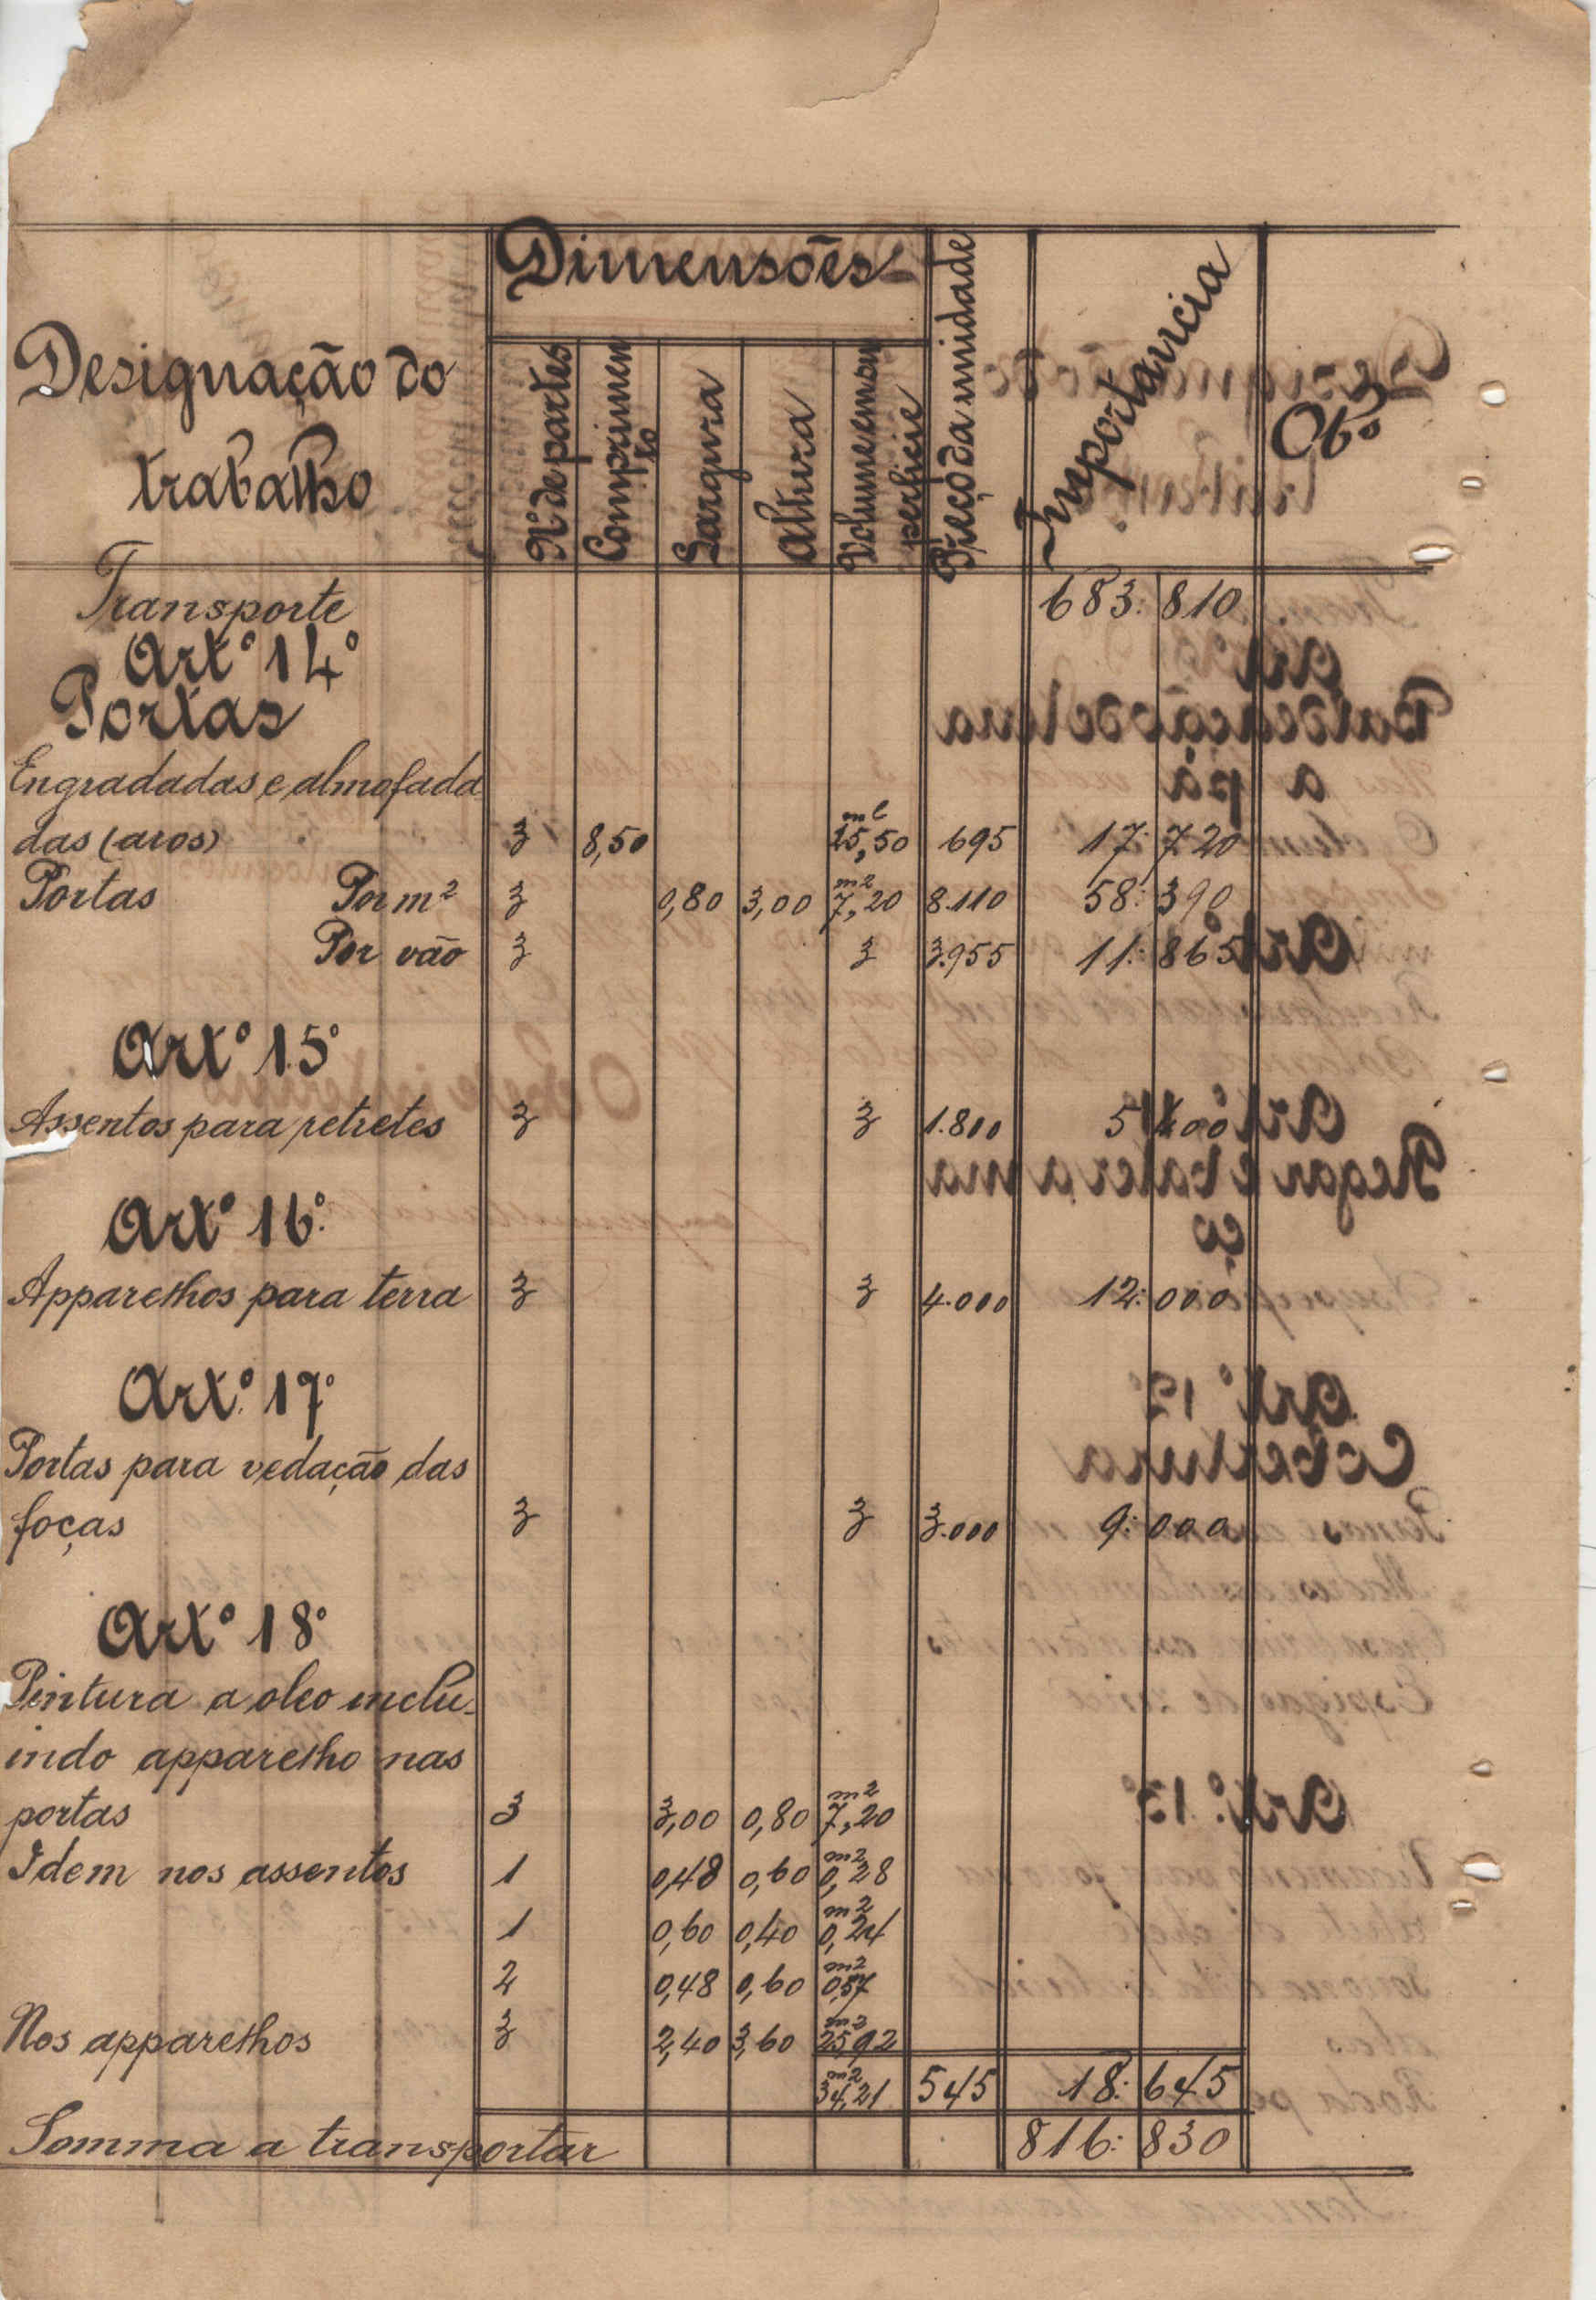 Designação do
trabalho
Dimensões
Nº de partes
Comprimen
to
Largura
Altura
Volume em su
perficie
Preço da unidade
Importancia
Obs
Transporte 683:810
Artº 14º
Portas
Engradadas e almofada
das (aros) 3 8,50 ml 25,50 695 17:720
Portas Por m² 3 0,80 3,00 m2 7,20 8.110 58:390
Por vão 3 3 3.955 11:865
Artº 15º
Assentos para retretes 3 3 1.800 5:400
Artº 16º
Apparelhos para terra 3 3 4.000 12:000
Artº 17º
Portas para vedação das
foças 3 3 3.000 9:000
Artº 18º
Pintura a oleo inclu-
indo apparelho nas
portas 3 3,00 0,80 m2 7,20
Idem nos assentos 1 0,48 0,60 m2 0,28
1 0,60 0,40 m2 0,24
2 0,48 0,60 m2 0,57
Nos apparelhos 3 2,40 3,60 m2 25,92
m2 34,21 545 18:645
Somma a transportar 816:830